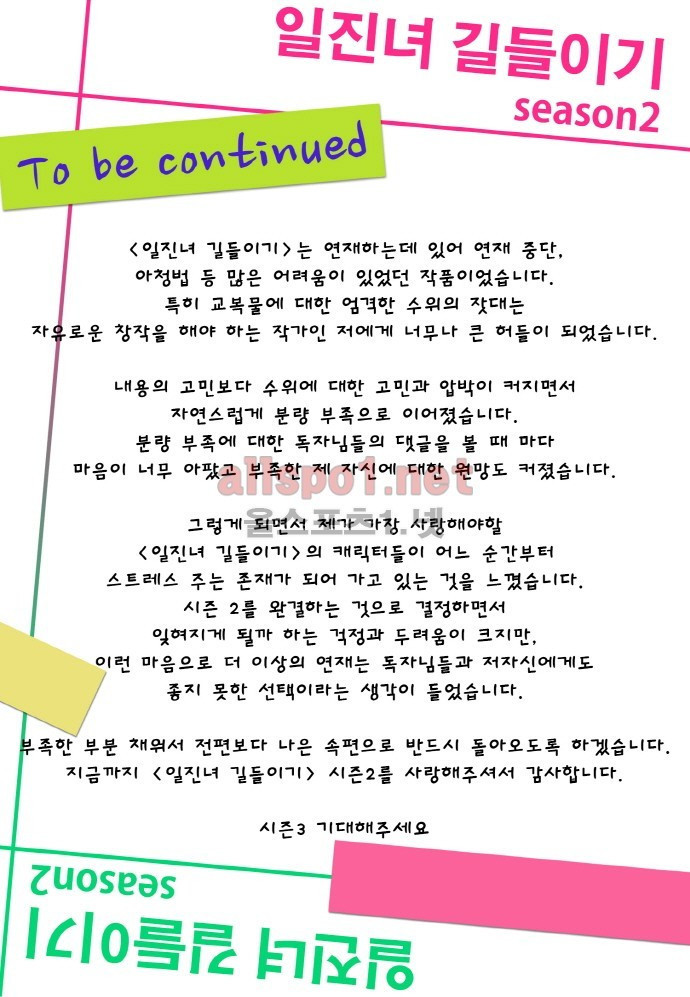 일진녀 길들이기
season2
To be continued
<일진녀 길들이기>는 연재하는데 있어 연재 중단,
아청법 등 많은 어려움이 있었던 작품이었습니다.
특히 교복물에 대한 엄격한 수위의 잣대는
자유로운 창작을 해야 하는 작가인 저에게 너무나 큰 허들이 되었습니다.
내용의 고민보다 수위에 대한 고민과 압박이 커지면서
자연스럽게 분량 부족으로 이어졌습니다.
분량 부족에 대한 독자님들의 댓글을 볼 때 마다
마음이 너무 아팠고 부족한 제 자신에 대한 원망도 커졌습니다.
allspo1.net
올스포츠1.넷
그렇게 되면서 제가 가장 사랑해야할
<일진녀 길들이기>의 캐릭터들이 어느 순간부터
스트레스 주는 존재가 되어 가고 있는 것을 느꼈습니다.
시즌 2를 완결하는 것으로 결정하면서
잊혀지게 될까 하는 걱정과 두려움이 크지만,
이런 마음으로 더 이상의 연재는 독자님들과 저자신에게도
좋지 못한 선택이라는 생각이 들었습니다.
부족한 부분 채워서 전편보다 나은 속편으로 반드시 돌아오도록 하겠습니다.
지금까지 <일진녀 길들이기> 시즌2를 사랑해주셔서 감사합니다.
시즌3 기대해주세요
season2
일진녀 길들이기